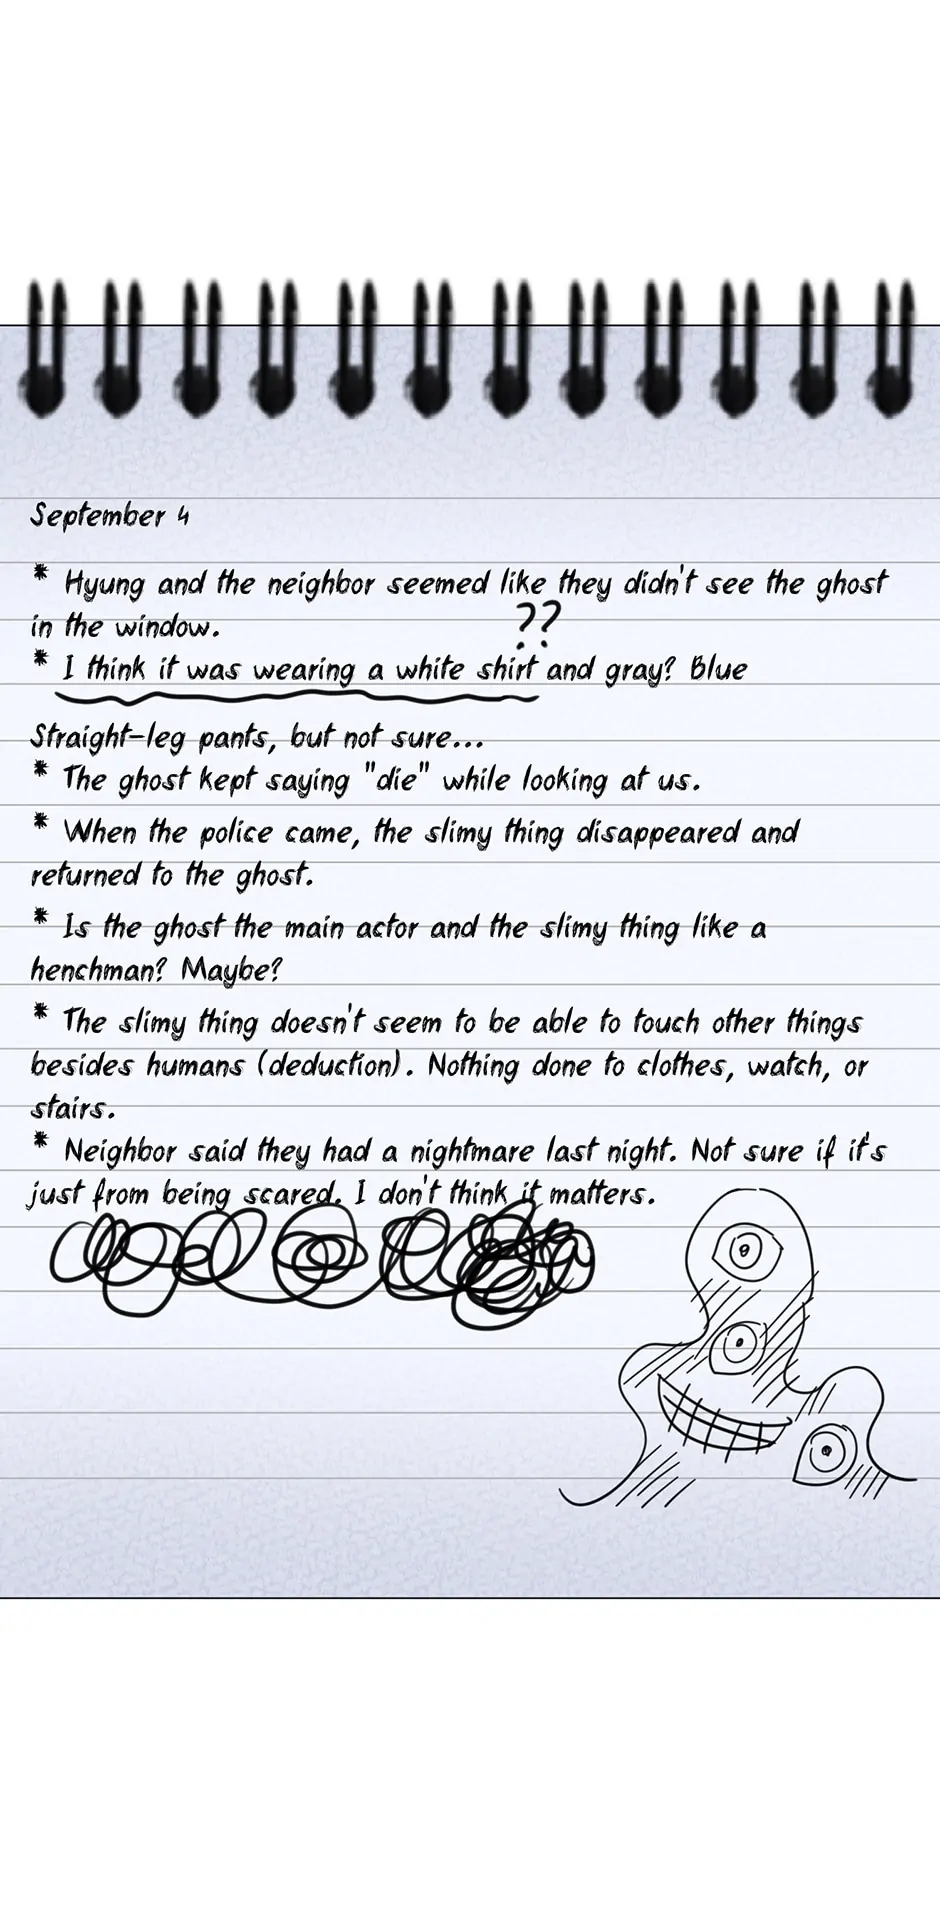 September 4
* Hyung and the neighbor seemed like they didn't see the ghost
in the window.
??
* I think it was wearing a white shirt and gray? Blue
Straight-leg pants, but not sure...
* The ghost kept saying "die" while looking at us.
* When the police came, the slimy thing disappeared and
returned to the ghost.
* Is the ghost the main actor and the slimy thing like a
henchman? Maybe?
* The slimy thing doesn't seem to be able to touch other things
besides humans (deduction). Nothing done to clothes, watch, or
stairs.
* Neighbor said they had a nightmare last night. Not sure if it's
just from being scared. I don't think it matters.